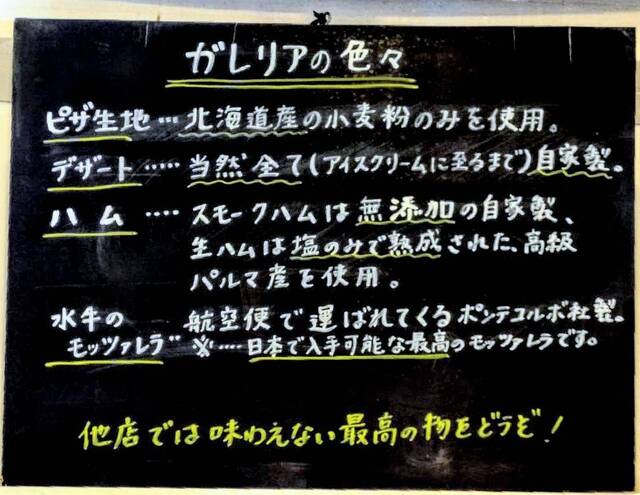 ガレリアの色々
ピザ生地…北海道産の小麦粉のみを使用。
デザート‥‥当然全て(アイスクリームに至るまで)自家製。
ハム‥‥スモークハムは無添加の自家製、
生ハムは塩のみで熟成された、高級
パルマ産を使用。
水牛の 航空便で運ばれてくるポンテコルボ社製。
モッツァレラ ※‥‥日本で入手可能な最高のモッツァレラです。
他店では味わえない最高の物をどうぞ！